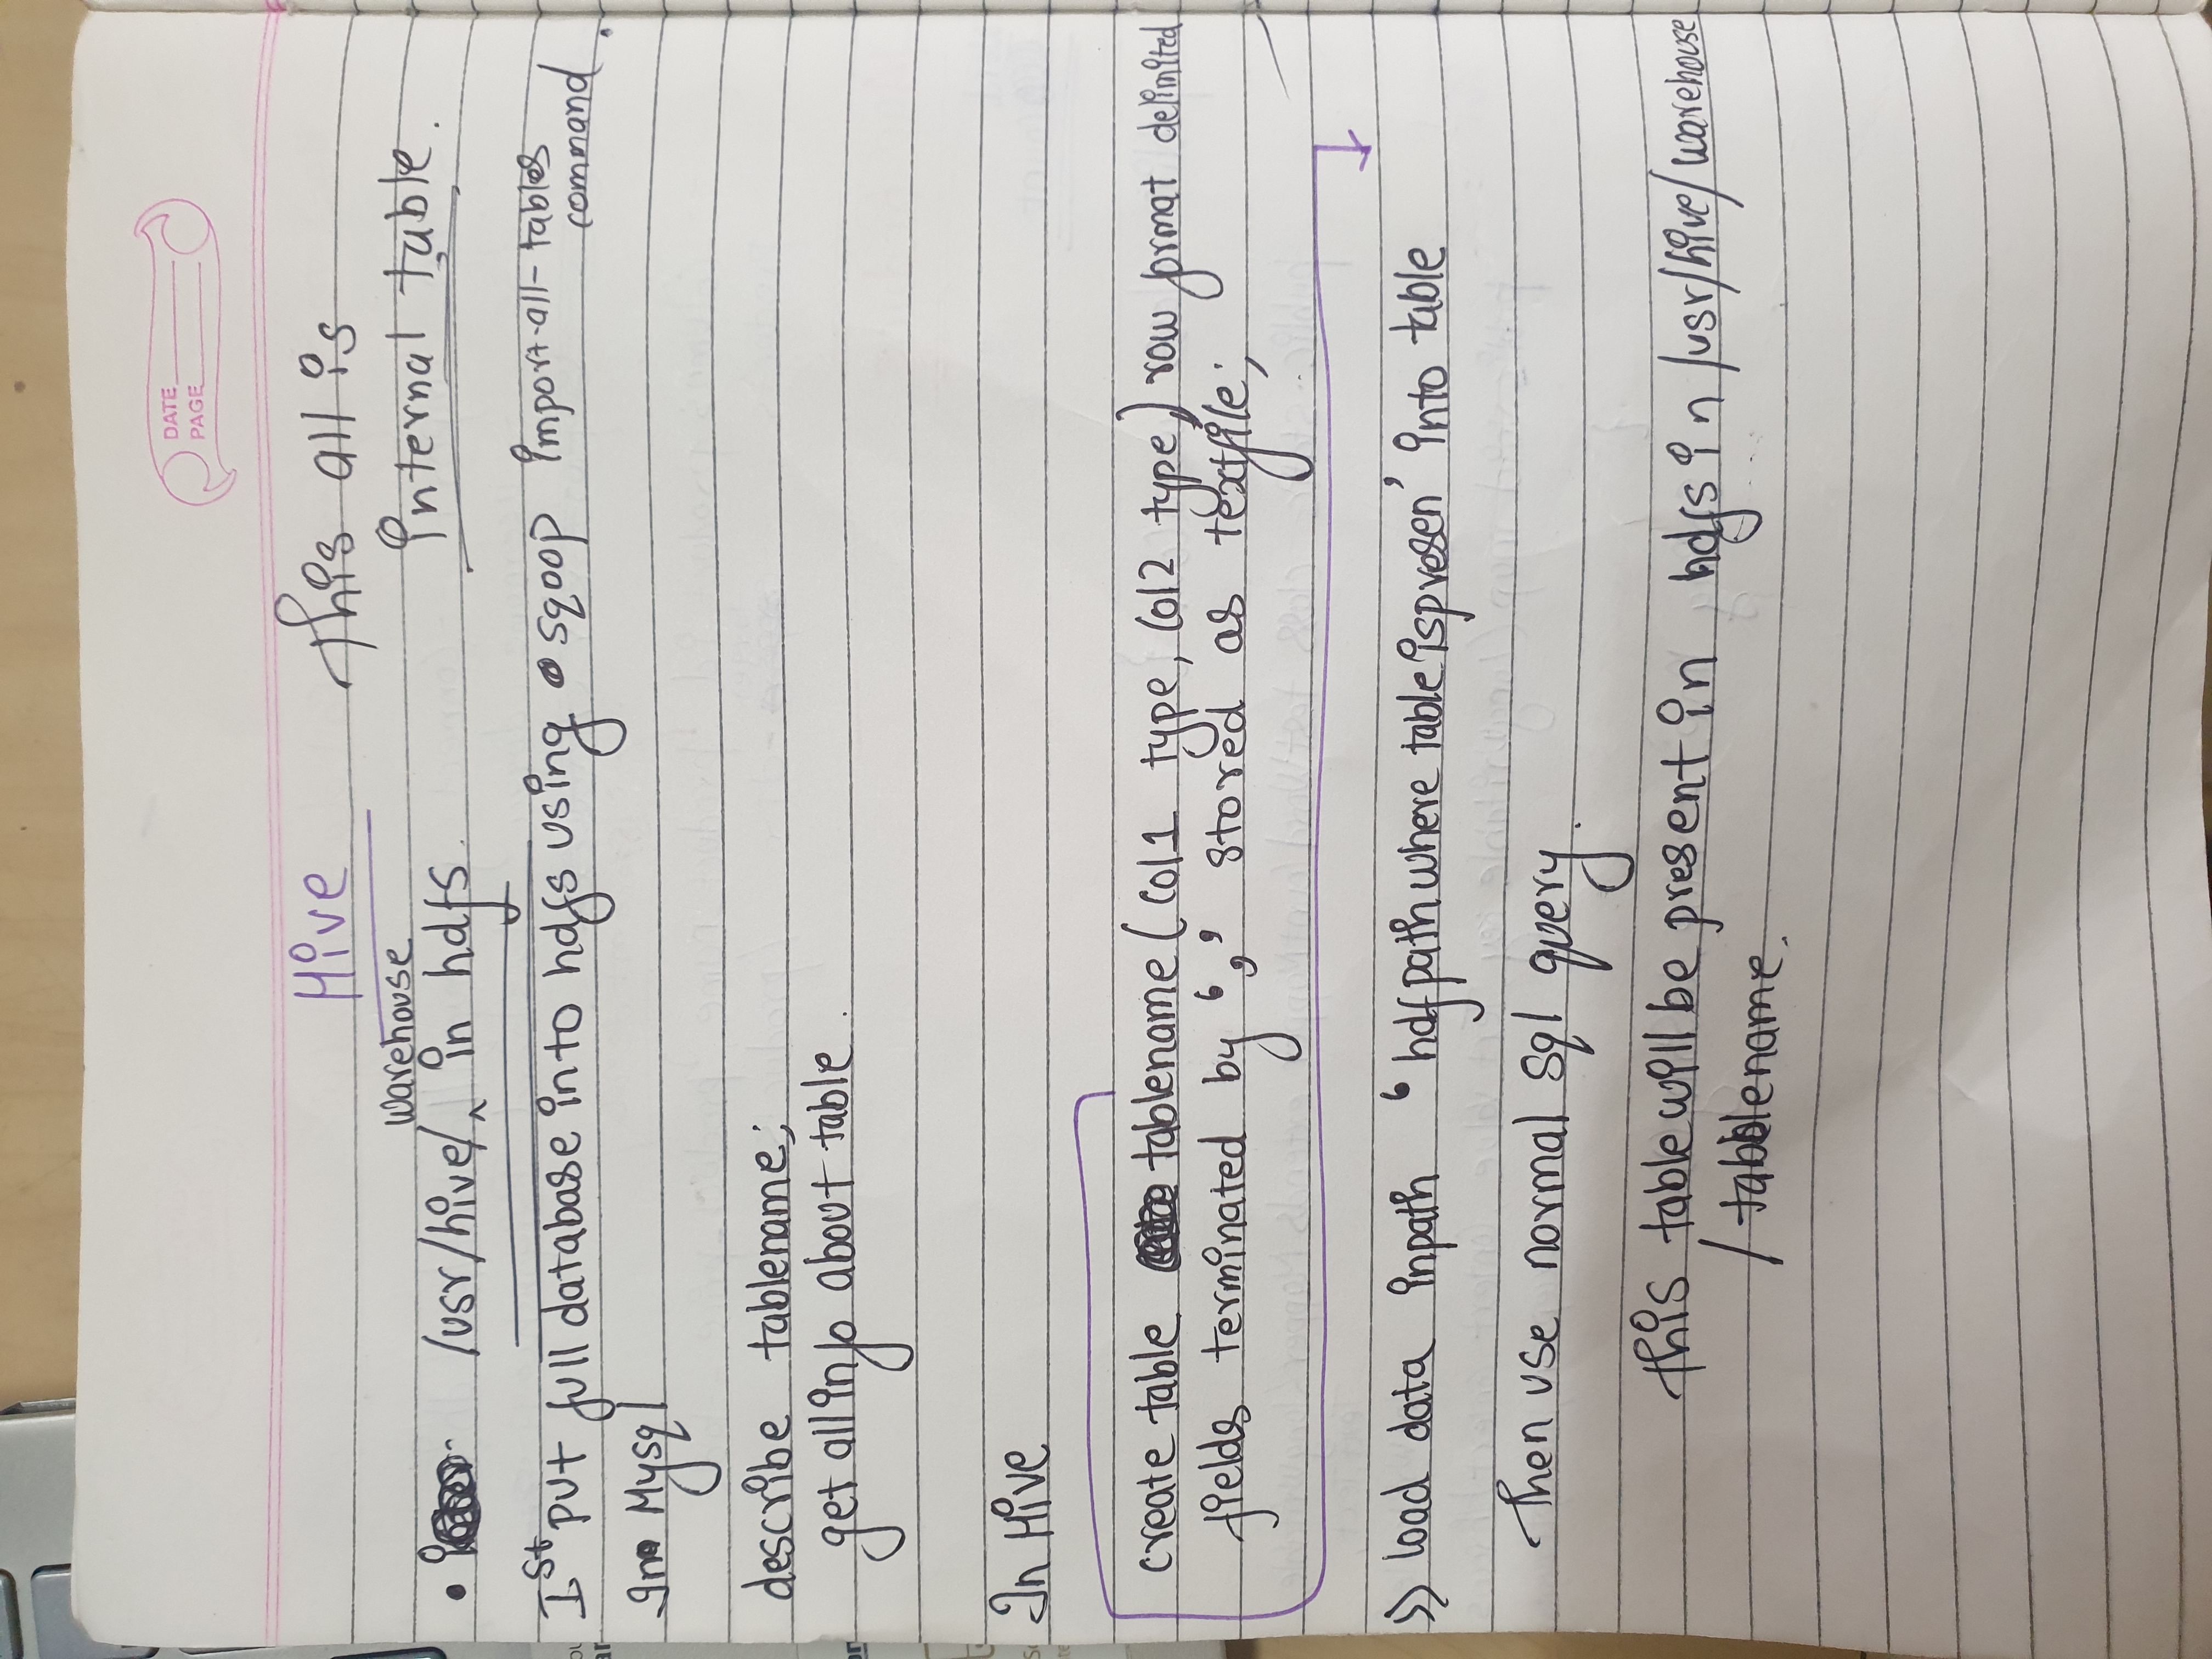 DATE
PAGE
Hive
This all is
internal table.
warehouse
• /usr/hive/^ in hdfs.
Ist put full database into hdfs using sqoop import-all-tables
command.
In Mysql
describe tablename;
get all info about table.
In Hive
create table tablename (col1 type, col2 type) row format delimited
fields terminated by ‘,’ stored as textfile;
>> load data inpath ‘hdfpath where table ispresen’ into table
Then use normal sql query.
this table will be present in hdfs in /usr/hive/warehouse
/tabblename.